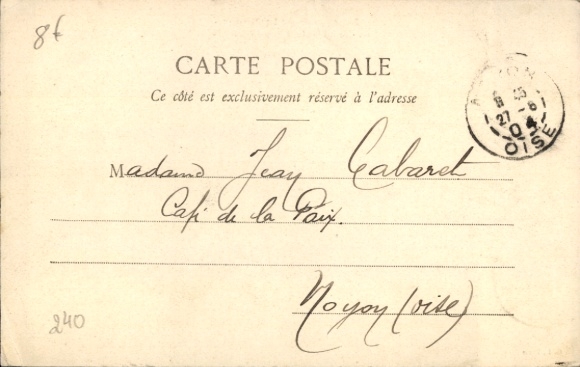 8€
CARTE POSTALE
Ce côté est exclusivement réservé à l'adresse
27 -6
04
OISE
Madame Jean Cabaret
Café de la Paix.
Noyon (oise)
240